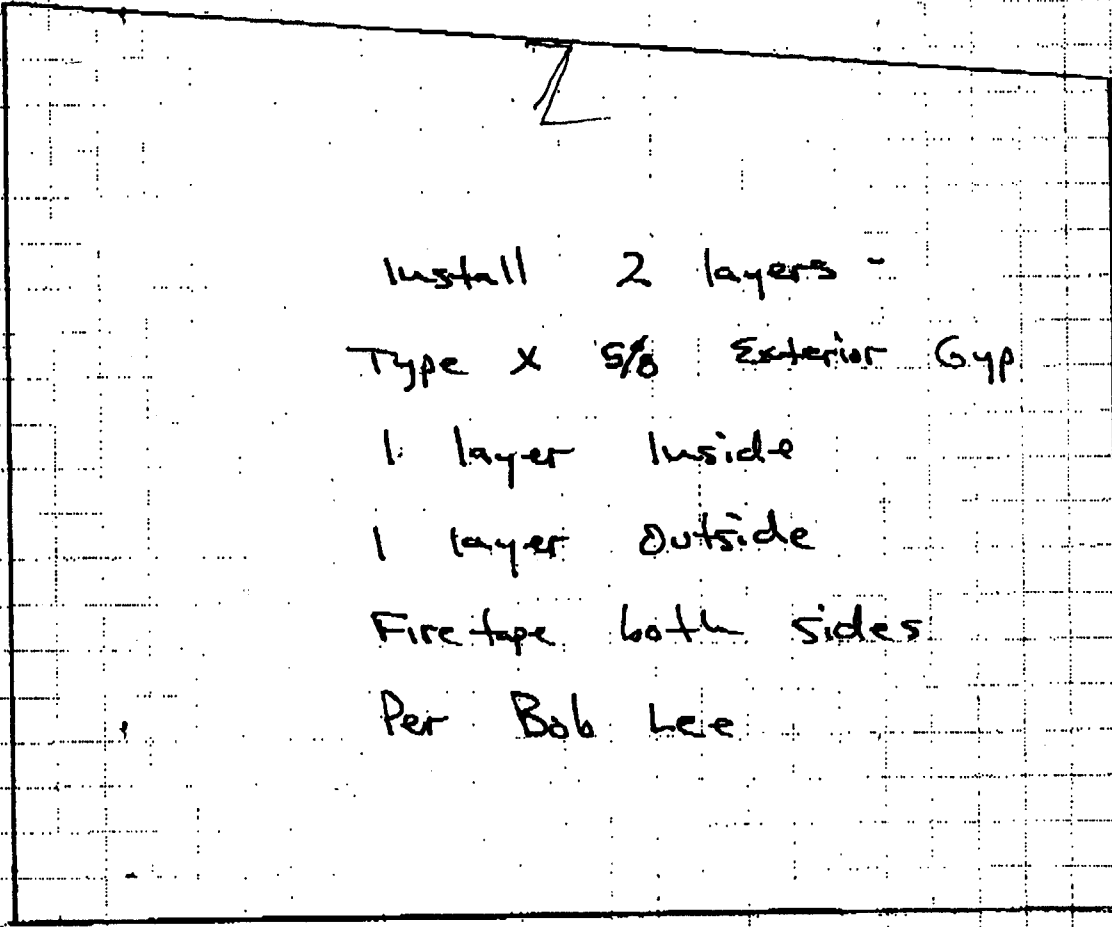 Install 2 layers -
Type X 5/8 Exterior Gyp
1 layer Inside
1 layer Outside
Firetape both sides
Per Bob Lee